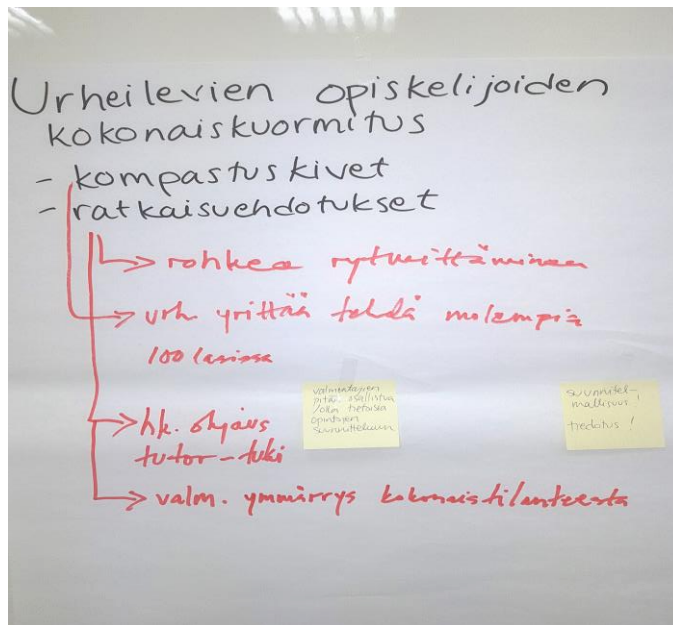 Urheilevien opiskelijoiden
kokonaiskuormitus
- kompastuskivet
- ratkaisuehdotukset
→ rohkea rytmittäminen
→ urh. yrittää tehdä molempia
100 lasissa
→ hk. ohjaus
tutor-tuki
→ valm. ymmärrys kokonaistilanteesta
valmentajien
pitää osallistua
/olla tietoisia
opintojen
suunnitteluun
suunnitel-
mallisuus!
tiedotus!